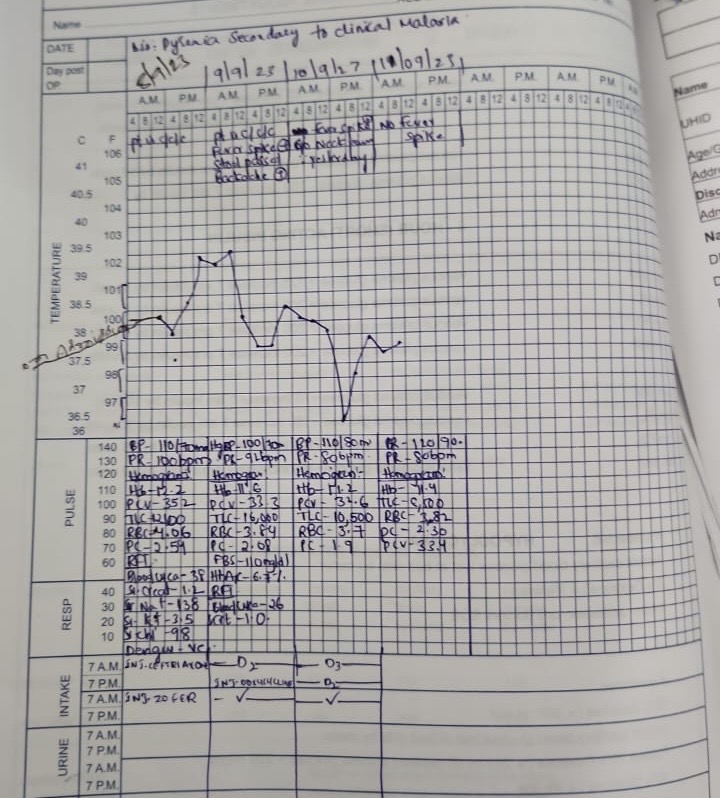 Name
DATE
Day post OP
Pyrexia Secondary to clinical Malaria
8/9/23 9/9/23 10/9/27 11/09/23
A.M. P.M. A.M. P.M. A.M. P.M. A.M. P.M. A.M. P.M. A.M. P.M.
4 8 12 4 8 12 4 8 12 4 8 12 4 8 12 4 8 12 4 8 12 4 8 12 4 8 12 4 8 12 4 8 12 4 8 12
C F
pt u c/c/c pt u c/c/c Fever spike No Fever
Fever spike spike
Stool passed yesterday
Backache
TEMPERATURE
106
41
105
40.5
104
40
103
39.5
102
39
101
38.5
100
38
99
37.5
98
37
97
36.5
36
on Admission
PULSE
140 BP- 110/70mmHg BP- 100/70 BP-110/80 BP-120/90.
130 PR-100bpm PR-92bpm PR-80bpm PR-80bpm
120 Hemogram: Hemogram: Hemogram:- Hemogram:
110 Hb-12.2 Hb-11.6 Hb-11.2 Hb-11.4
100 PCV-35.2 PCV-33.3 PCV-32.6
90 TLC-16,000 TLC-10,500 RBC-3.82
80 RBC-4.06 RBC-3.84 RBC-3.7 PC-2.30
70 PC-2.54 PC-2.08 PC-1.9 PCV-33.4
60 RFT FBS-110mg/dl
Blood Urea-38 HbA1c-6.7%
RESP
40 Sr. Creat-1.2 RFT
30 Sr Na+-138 Blood Urea-26
20 Sr. K+-3.5 Creat-1.0.
10 Sr Cl-98
Dengue-ve
INTAKE
7 A.M. INJ. CEFTRIAXON D2 D3
7 P.M. INJ. DOXYCYCLINE D2
7 A.M. INJ. ZOFER ✓ ✓
7 P.M.
URINE
7 A.M.
7 P.M.
7 A.M.
7 P.M.
Name
UHID
Age/G
Addre
Disc
Adm
Na
D